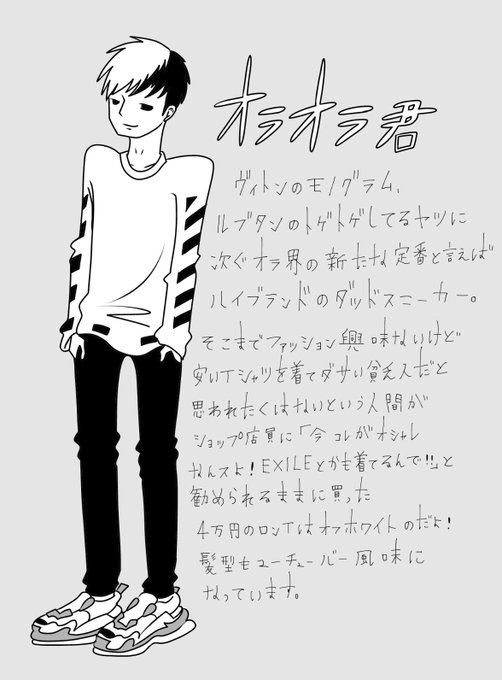 オラオラ君
ヴィトンのモノグラム、
ルブタンのトゲトゲしてるヤツに
次ぐオラ界の新たな定番と言えば
ハイブランドのダッドスニーカー。
そこまでファッション興味ないけど
安いTシャツを着てダサい貧乏人だと
思われたくはないという人間が
ショップ店員に「今コレがオシャレ
なんスよ！EXILEとかも着てるんで!!」と
勧められるままに買った
4万円のロンTはオフホワイトのだよ！
髪型もユーチューバー風味に
なっています。